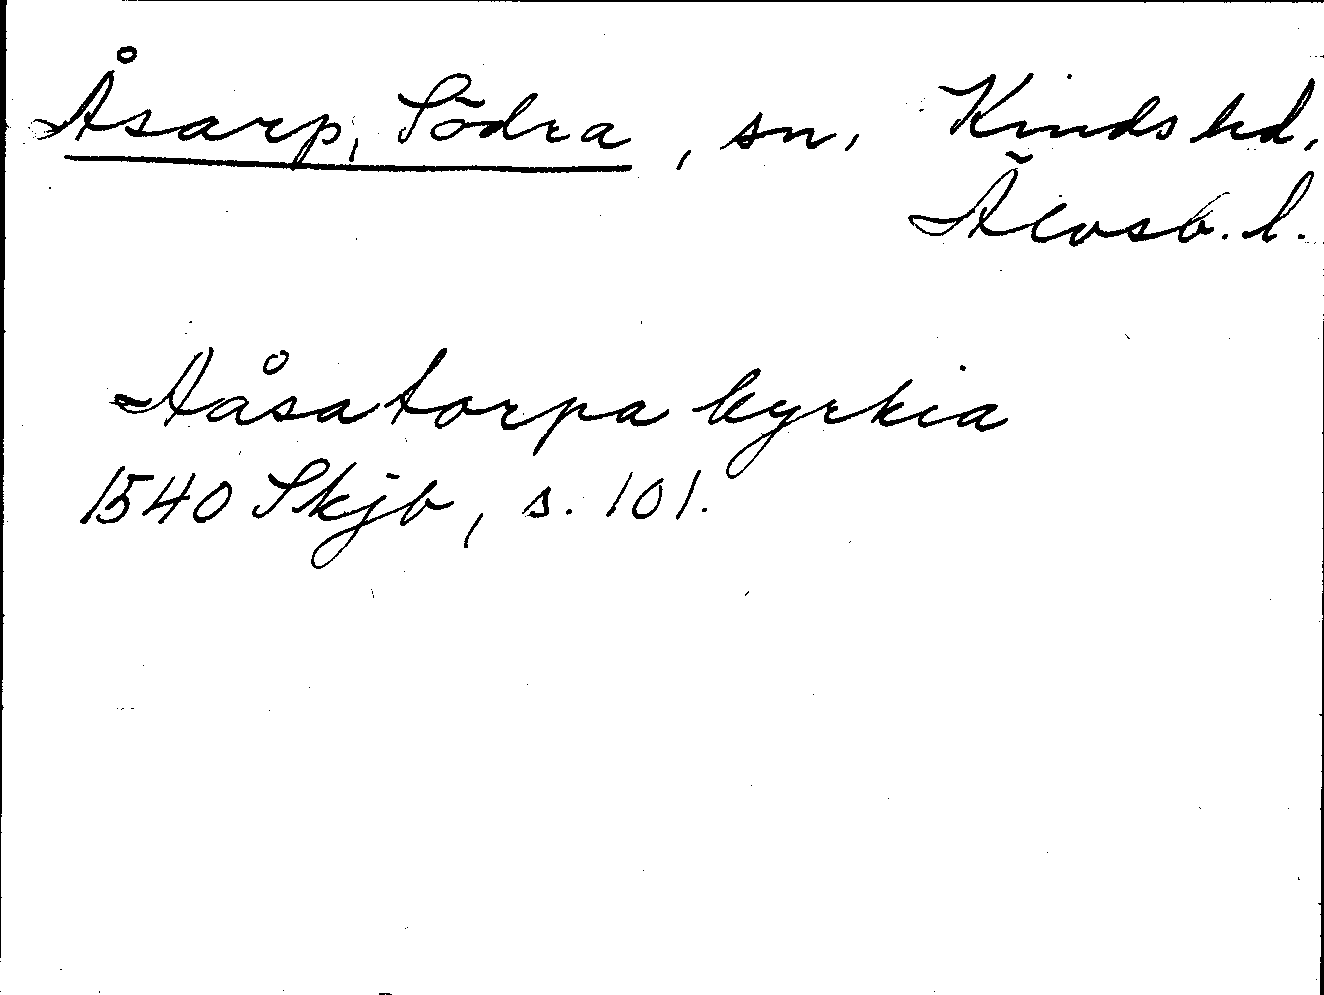 Åsarp, Södra, sn. Kinds hd.
Älvsb. l.
Aåsatorpa kyrkia
1540 Skjb, s. 101.